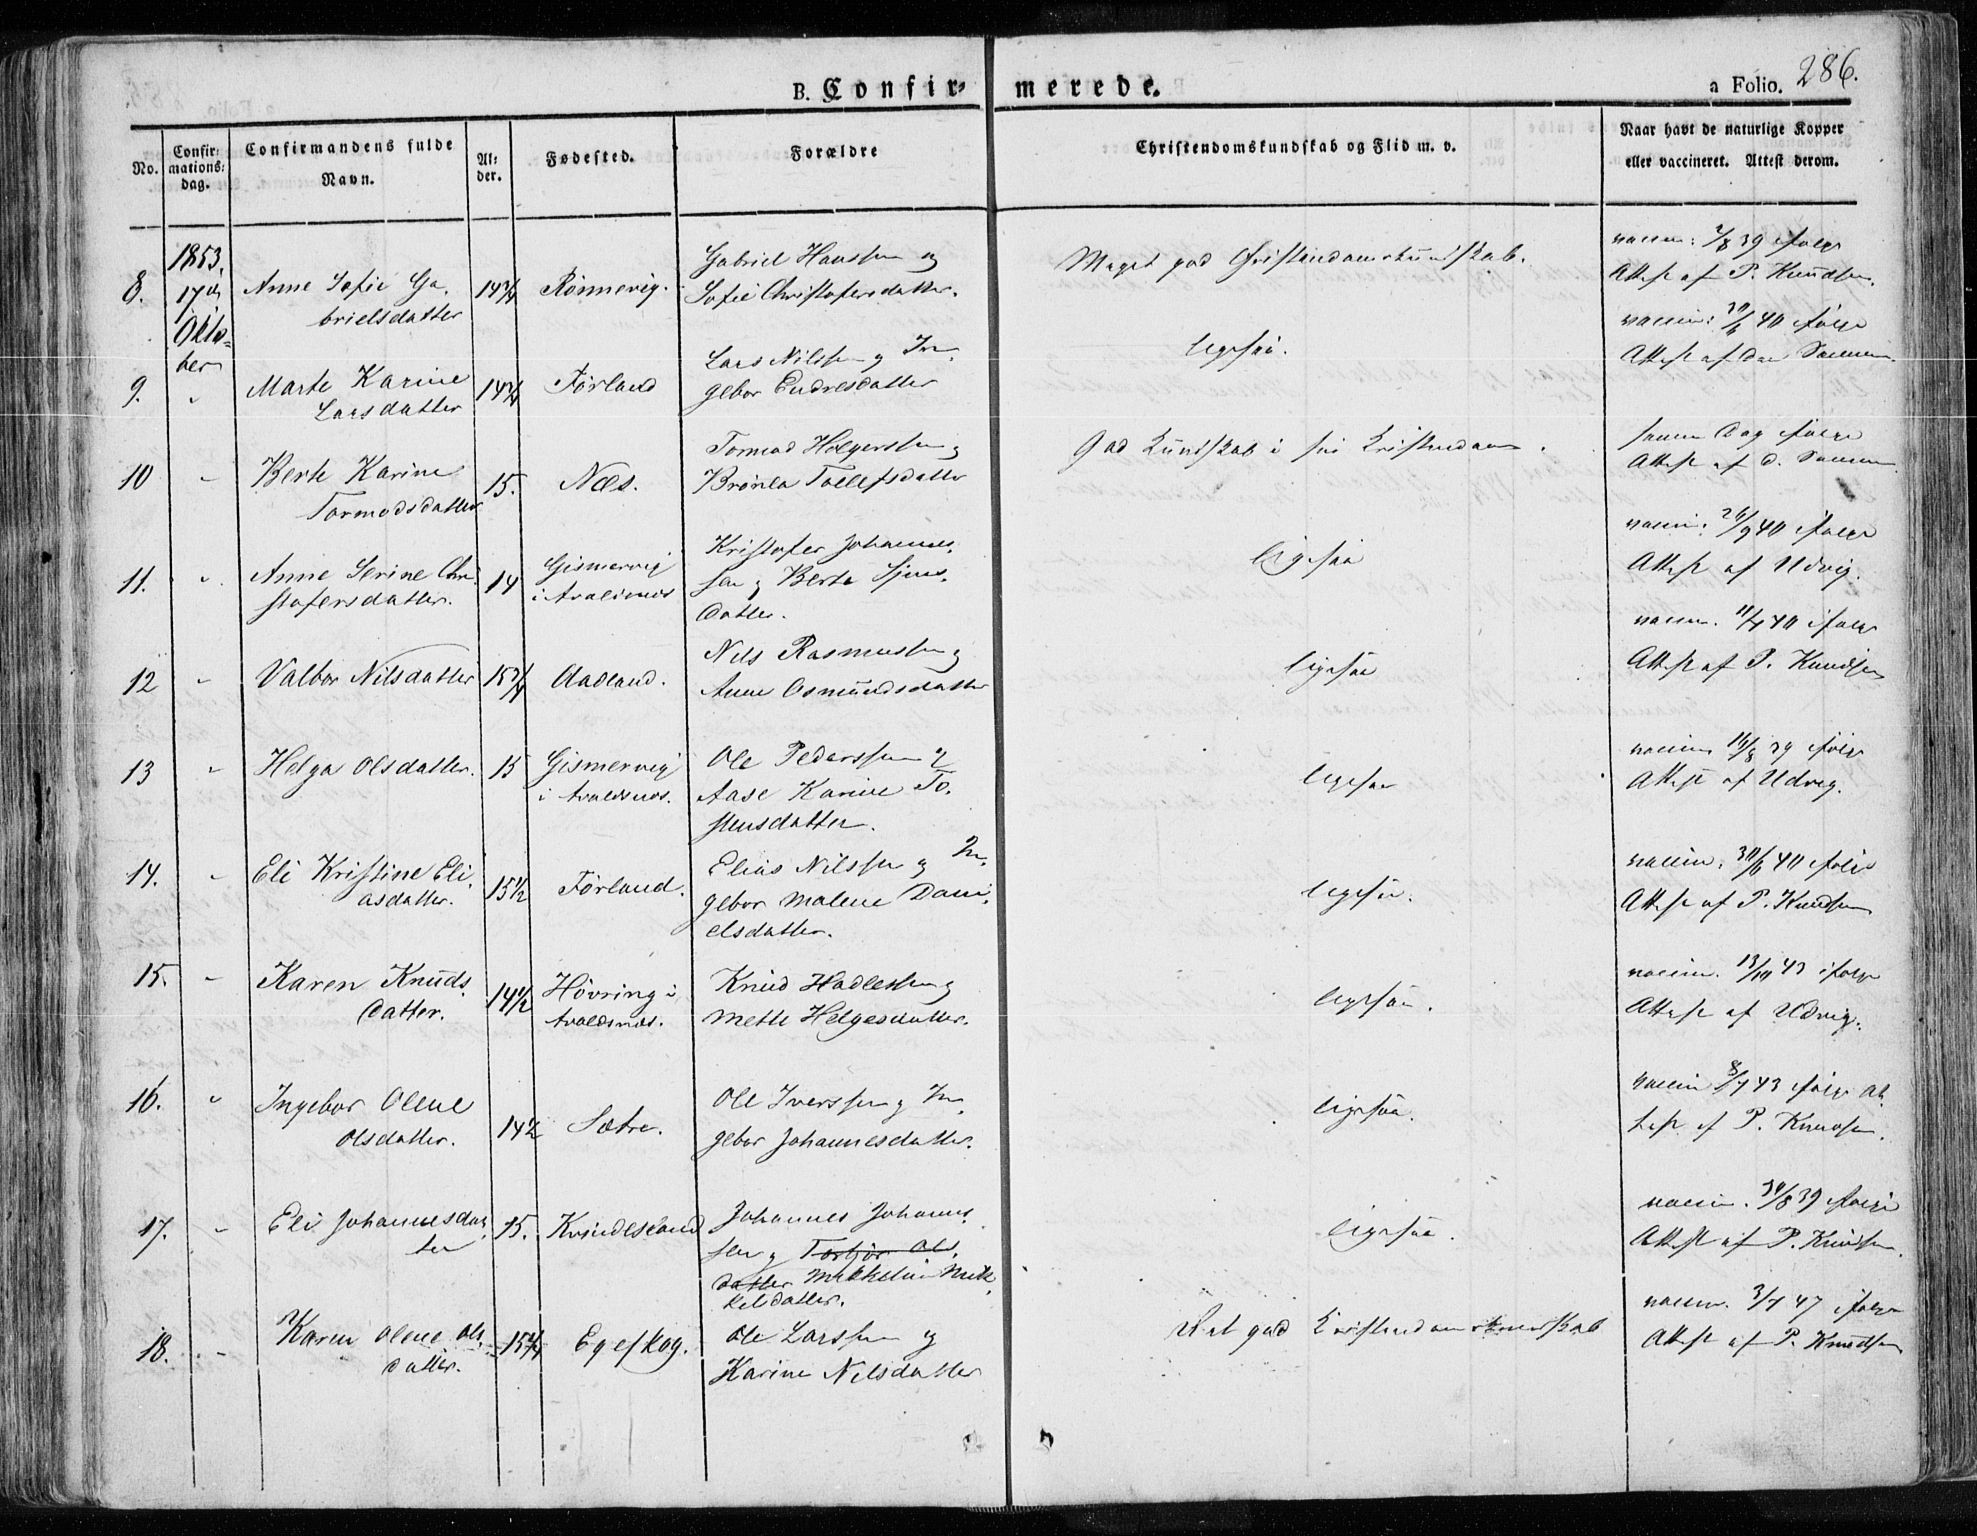 B. Confir- merede.
a Folio. 286.
No.
Confir-
mations-
dag.
Confirmandens fulde
Navn.
Al-
der.
Fødested.
Forældre
Christendomskundskab og Flid m. v.
Naar havt de naturlige Kopper
eller vaccineret. Attest derom.
1853.
17de
Okto-
ber
8.
Anne Sofie Ga-
brielsdatter
Rønnevig.
Gabriel Hanssen og
Sofie Christofersdatter.
Meget god Christendomskundskab.
vaccin: 2/8 39 ifølge
Attest af P. Knudsen.
9.
"
Marte Karine
Larsdatter
Førland
Lars Nilssen og In-
gebor Endresdatter
ligesaa.
vaccin: 30/6 40 ifølge
Attest af den Samme.
10
"
Berte Karine
Tormodsdatter
15.
Næs.
Tormod Holgerssen og
Tollefsdatter
God Kundskab i sin Kristendom.
samme Dag ifølge
Attest af d. Samme
11.
"
Anne Serine Chri-
stofersdatter.
14
Gismervig
i Avaldsnæs
Kristofer Johannes-
sen og Berta
datter.
ligesaa
vaccin: 26/9 40 ifølge
Attest af Udvig.
12
"
Valbor Nilsdatter
Aadland.
Nils Rasmussen og
Anne Osmundsdatter
ligesaa
vaccin. 11/7 40 ifølge
Attest af P. Knudsen
13
"
Helga Olsdatter.
15
Gismervig
i Avaldsnæs.
Ole Pederssen og
Aase Karine To-
stensdatter.
ligesaa
vaccin 16/8 39 ifølge
Attest af Udvig.
14.
"
Eli Kristine Eli-
asdatter.
15 1/2
Førland.
Elias Nilssen og In-
gebor Malene Dani-
elsdatter.
ligesaa.
vaccin: 30/6 40 ifølge
Attest af P. Knudsen
15.
"
Karen Knuds-
datter.
14 1/2
Høvring i
Avaldsnæs.
Knud Hadlessen og
Mette Helgesdatter.
ligesaa.
vaccin. 13/10 43 ifølge
Attest af Udvig.
16.
"
Ingebor Olene
Olsdatter.
14 1/2
Sætre.
Ole Iverssen og In-
gebor Johannesdatter.
ligesaa.
vaccin 8/7 43 ifølge At-
test af P. Knudsen.
17.
"
Eli Johannesdat-
ter
15.
Kvindesland
Johannes Johannes-
sen og Torbjør Ols-
datter Mikkeline Mik-
kelsdatter.
ligesaa.
vaccin. 30/8 39 ifølge
Attest af P. Knudsen.
18.
"
Karen Olene Ols-
datter.
Egeskog.
Ole Larssen og
Karine Nilsdatter
god Kristendomskundskab
vaccin. 3/7 47 ifølge
Attest af P. Knudsen